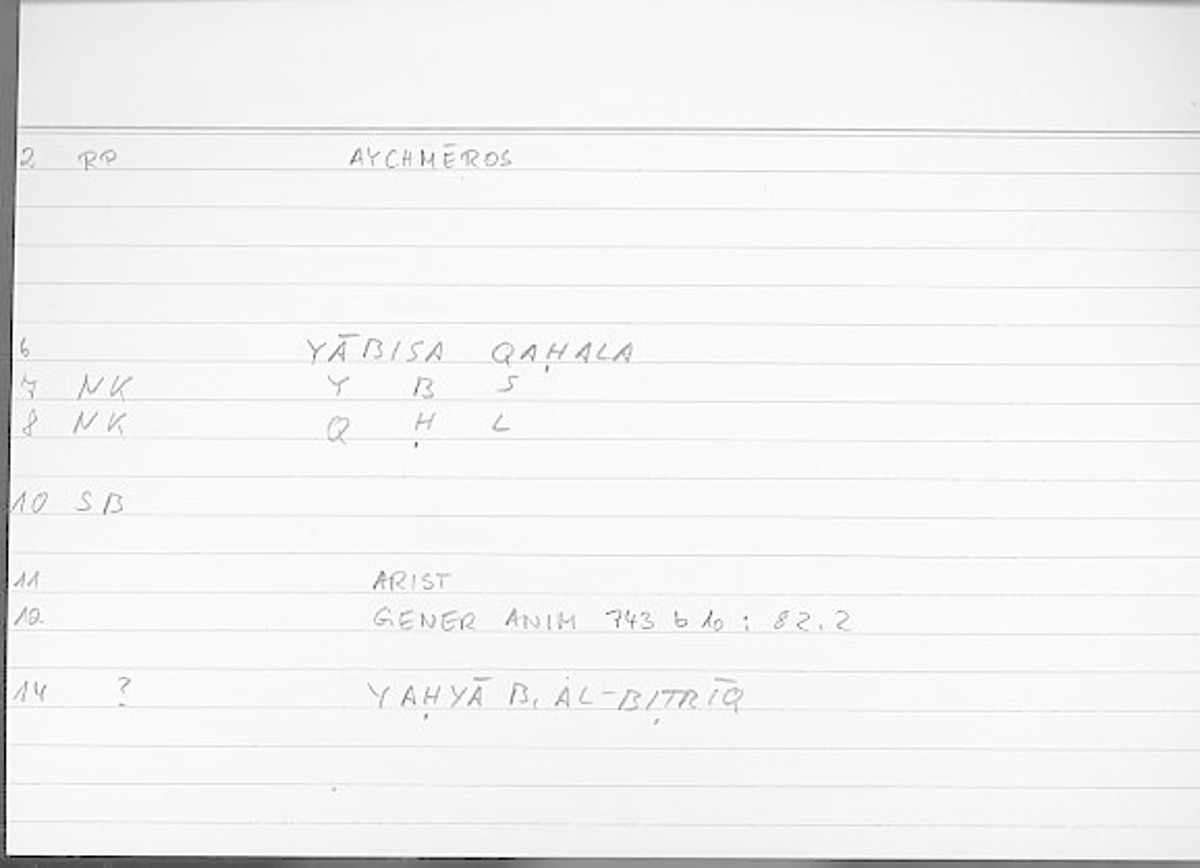 2 RP AYCHMĒROS
6 YĀBISA QAḤALA
7 NK Y B S
8 NK Q Ḥ L
10 SB
11 ARIST
12 GENER ANIM 743 b 10 : 82.2
14 ? YAḤYĀ B. AL-BIṬRĪQ